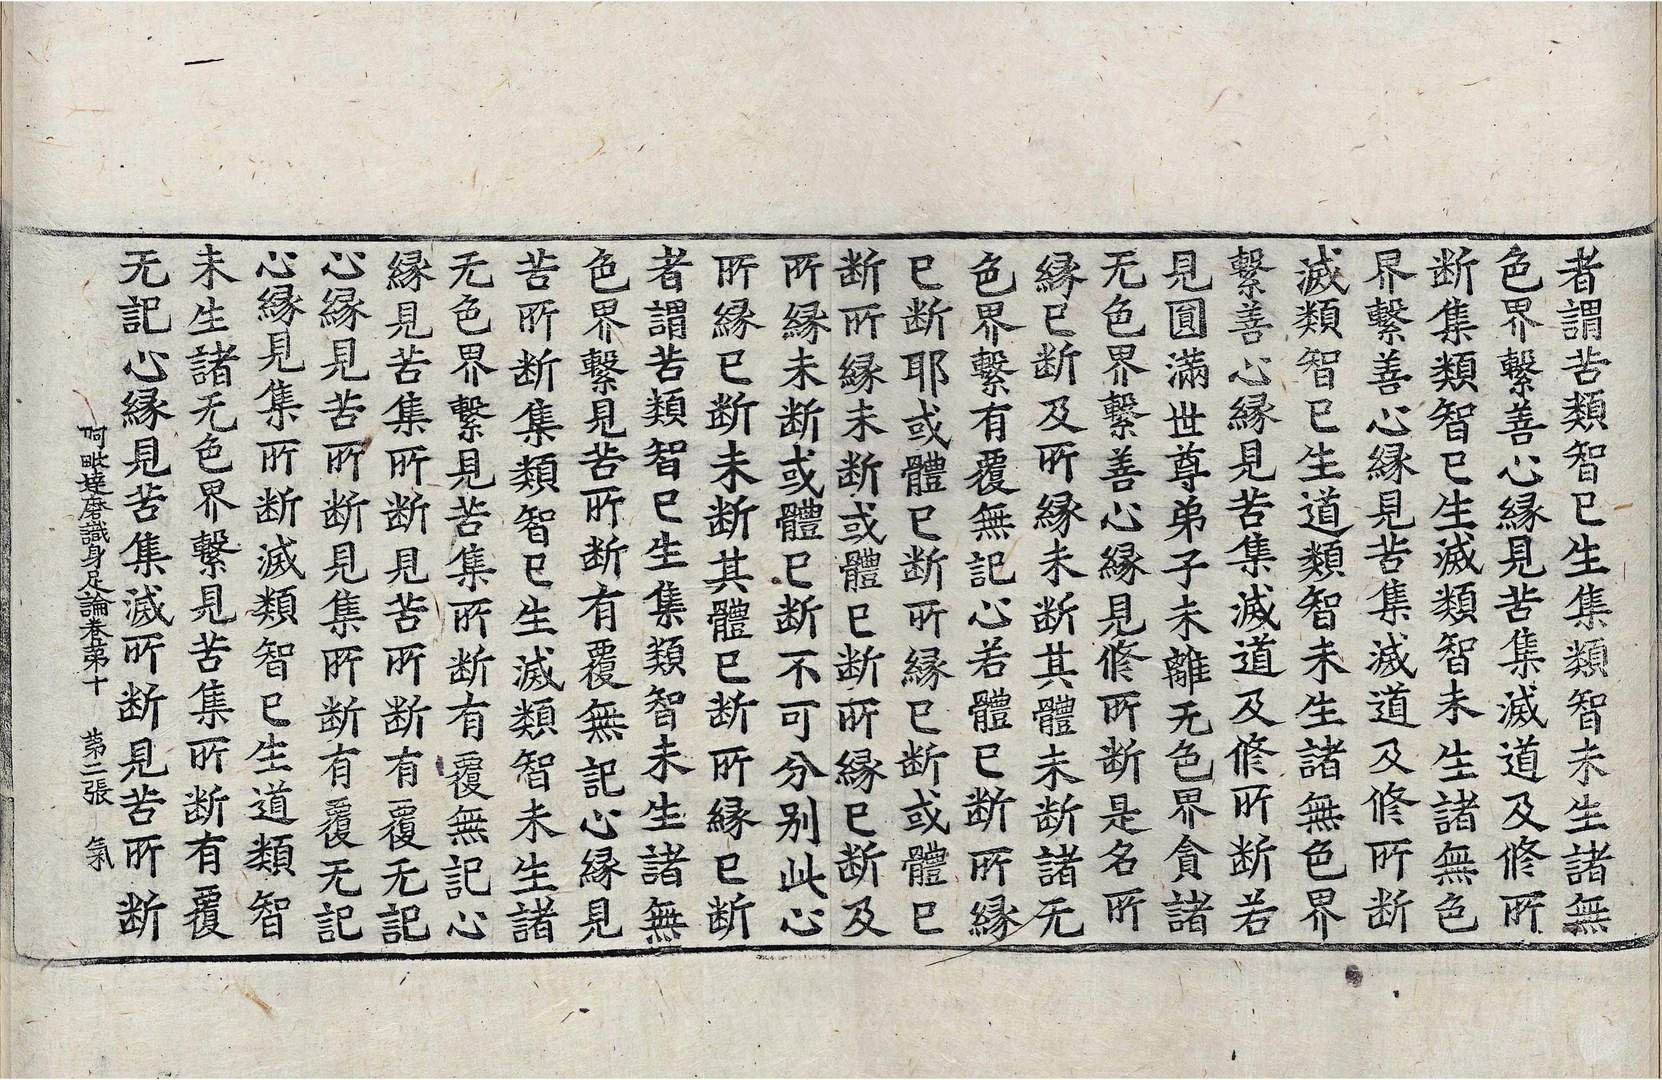 者謂苦類智已生集類智未生諸無
色界繫善心縁見苦集滅道及修所
断集類智已生滅類智未生諸無色
界繫善心縁見苦集滅道及修所断
滅類智已生道類智未生諸無色界
繫善心縁見苦集滅道及修所断若
見圓滿世尊弟子未離无色界貪諸
无色界繫善心縁見修所断是名所
縁已断及所縁未断其體未断諸无
色界繫有覆無記心若體已断所縁
已断耶或體已断所縁已断或體已
断所縁未断或體已断所縁已断及
所縁未断或體已断不可分別此心
所縁已断未断其體已断所縁已断
者謂苦類智已生集類智未生諸無
色界繫見苦所断有覆無記心縁見
苦所断集類智已生滅類智未生諸
无色界繫見苦集所断有覆無記心
縁見苦集所断見苦所断有覆无記
心縁見苦所断見集所断有覆无記
心縁見集所断滅類智已生道類智
未生諸无色界繫見苦集所断有覆
无記心縁見苦集滅所断見苦所断
阿毗達磨識身足論卷第十 第二張 氣